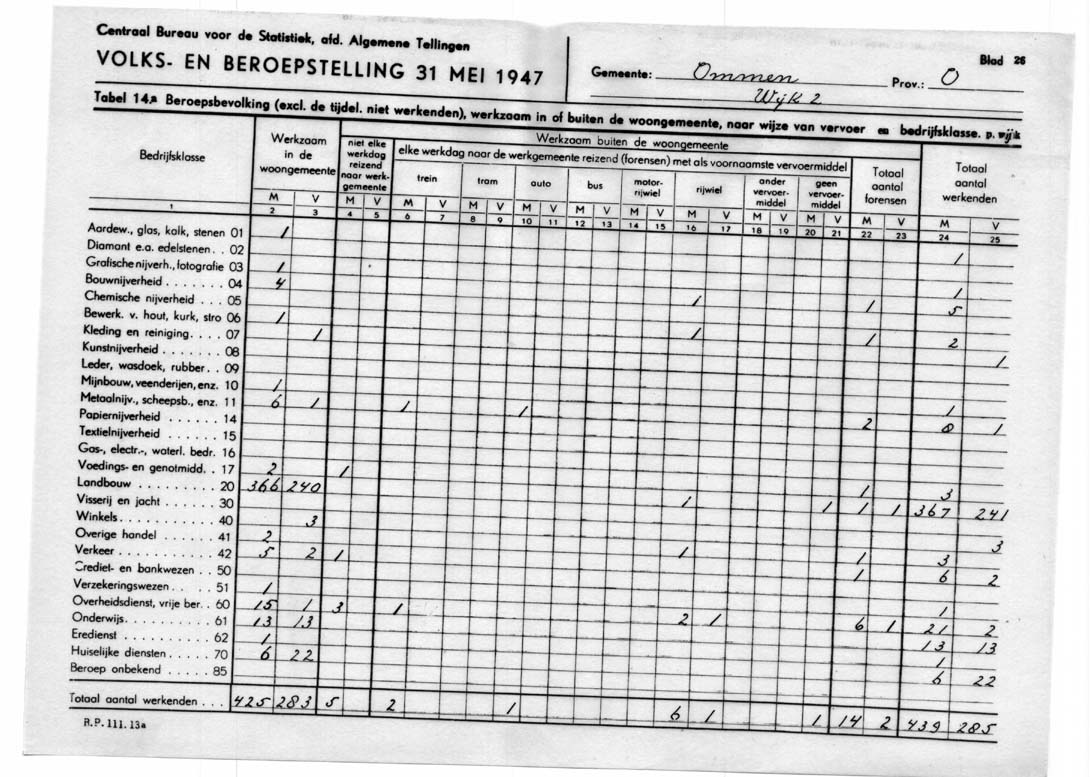 Centraal Bureau voor de Statistiek, afd. Algemene Tellingen
VOLKS- EN BEROEPSTELLING 31 MEI 1947
Gemeente: Ommen
Wijk 2
Prov.: O
Blad 26
Tabel 14.a Beroepsbevolking (excl. de tijdel. niet werkenden), werkzaam in of buiten de woongemeente, naar wijze van vervoer en bedrijfsklasse. p. wijk
Bedrijfsklasse
Werkzaam in de woongemeente
Werkzaam buiten de woongemeente
niet elke werkdag reizend naar werkgemeente
elke werkdag naar de werkgemeente reizend (forensen) met als voornaamste vervoermiddel
trein tram auto bus motorrijwiel rijwiel ander vervoermiddel geen vervoermiddel
Totaal aantal forensen
Totaal aantal werkenden
M V M V M V M V M V M V M V M V M V M V M V M V
1 2 3 4 5 6 7 8 9 10 11 12 13 14 15 16 17 18 19 20 21 22 23 24 25
Aardew., glas, kalk, stenen 01 1 1
Diamant e.a. edelstenen . . 02
Grafische nijverh., fotografie 03 1 1
Bouwnijverheid . . . . . . . 04 4 1 1 5
Chemische nijverheid . . . 05
Bewerk. v. hout, kurk, stro 06 1 1 1 2
Kleding en reiniging. . . . 07 1 1
Kunstnijverheid . . . . . . . 08
Leder, wasdoek, rubber. . 09
Mijnbouw, veenderijen, enz. 10 1 1
Metaalnijv., scheepsb., enz. 11 6 1 1 1 2 8 1
Papiernijverheid . . . . . . 14
Textielnijverheid . . . . . . 15
Gas-, electr.-, waterl. bedr. 16
Voedings- en genotmidd. . 17 2 1 1 3
Landbouw . . . . . . . . . 20 366 240 1 1 1 1 367 241
Visserij en jacht . . . . . . 30
Winkels . . . . . . . . . . . 40 3 3
Overige handel . . . . . . 41 2 1 1 3
Verkeer . . . . . . . . . . . 42 5 2 1 1 6 2
Crediet- en bankwezen . . 50
Verzekeringswezen . . . . 51 1 1
Overheidsdienst, vrije ber. . 60 15 1 3 1 2 1 6 1 21 2
Onderwijs. . . . . . . . . . 61 13 13 13 13
Eredienst . . . . . . . . . . 62 1 1
Huiselijke diensten . . . . . 70 6 22 6 22
Beroep onbekend . . . . . 85
Totaal aantal werkenden . . . 425 283 5 2 1 6 1 1 14 2 439 285
R.P. 111. 13a